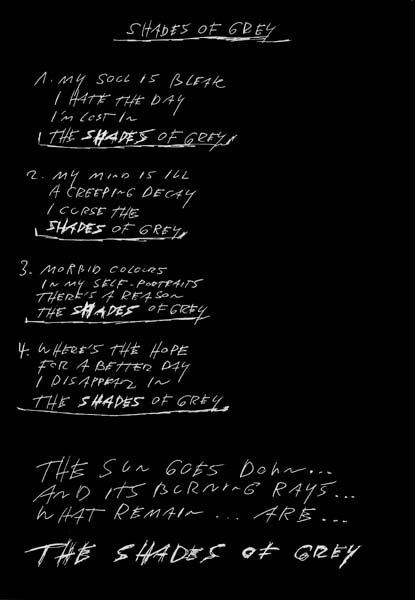 SHADES OF GREY
1. MY SOUL IS BLEAK
I HATE THE DAY
I'M LOST IN
THE SHADES OF GREY
2. MY MIND IS ILL
A CREEPING DECAY
I CURSE THE
SHADES OF GREY
3. MORBID COLOURS
IN MY SELF-PORTRAITS
THERE'S A REASON
THE SHADES OF GREY
4. WHERE'S THE HOPE
FOR A BETTER DAY
I DISAPPEAR IN
THE SHADES OF GREY
THE SUN GOES DOWN...
AND ITS BURNING RAYS...
WHAT REMAIN... ARE...
THE SHADES OF GREY